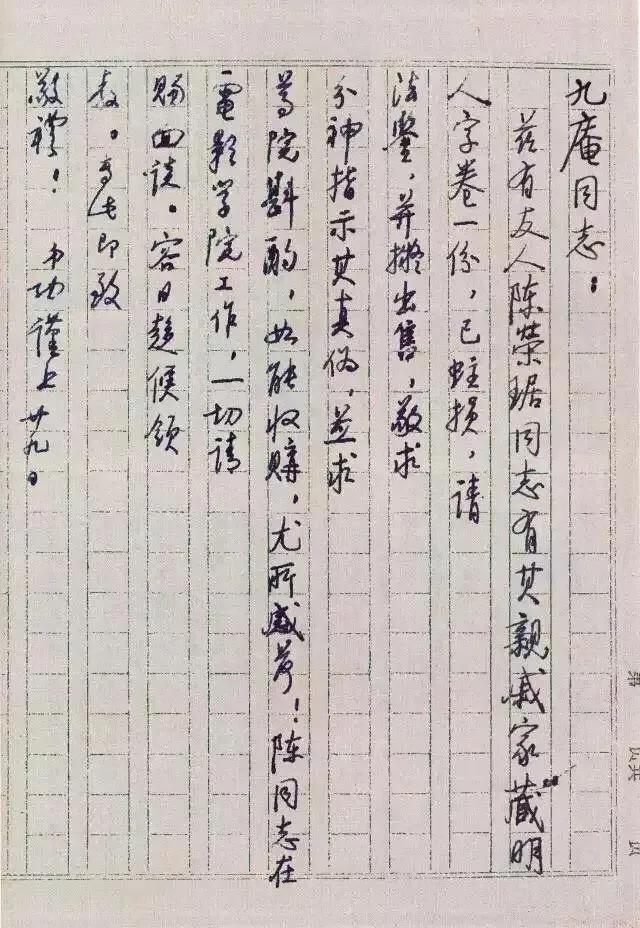 九庵同志：
兹有友人陈荣琚同志有其亲戚家藏明
人字卷一份，已蛀损，请
法鉴，并拟出售，敬求
分神指示其真伪，并求
尊院斟酌，如能收购，尤所感荷！陈同志在
電影学院工作，一切请
赐面谈。容日趋候领
教。专此即致
敬礼！ 功谨上 廿九日
第
共